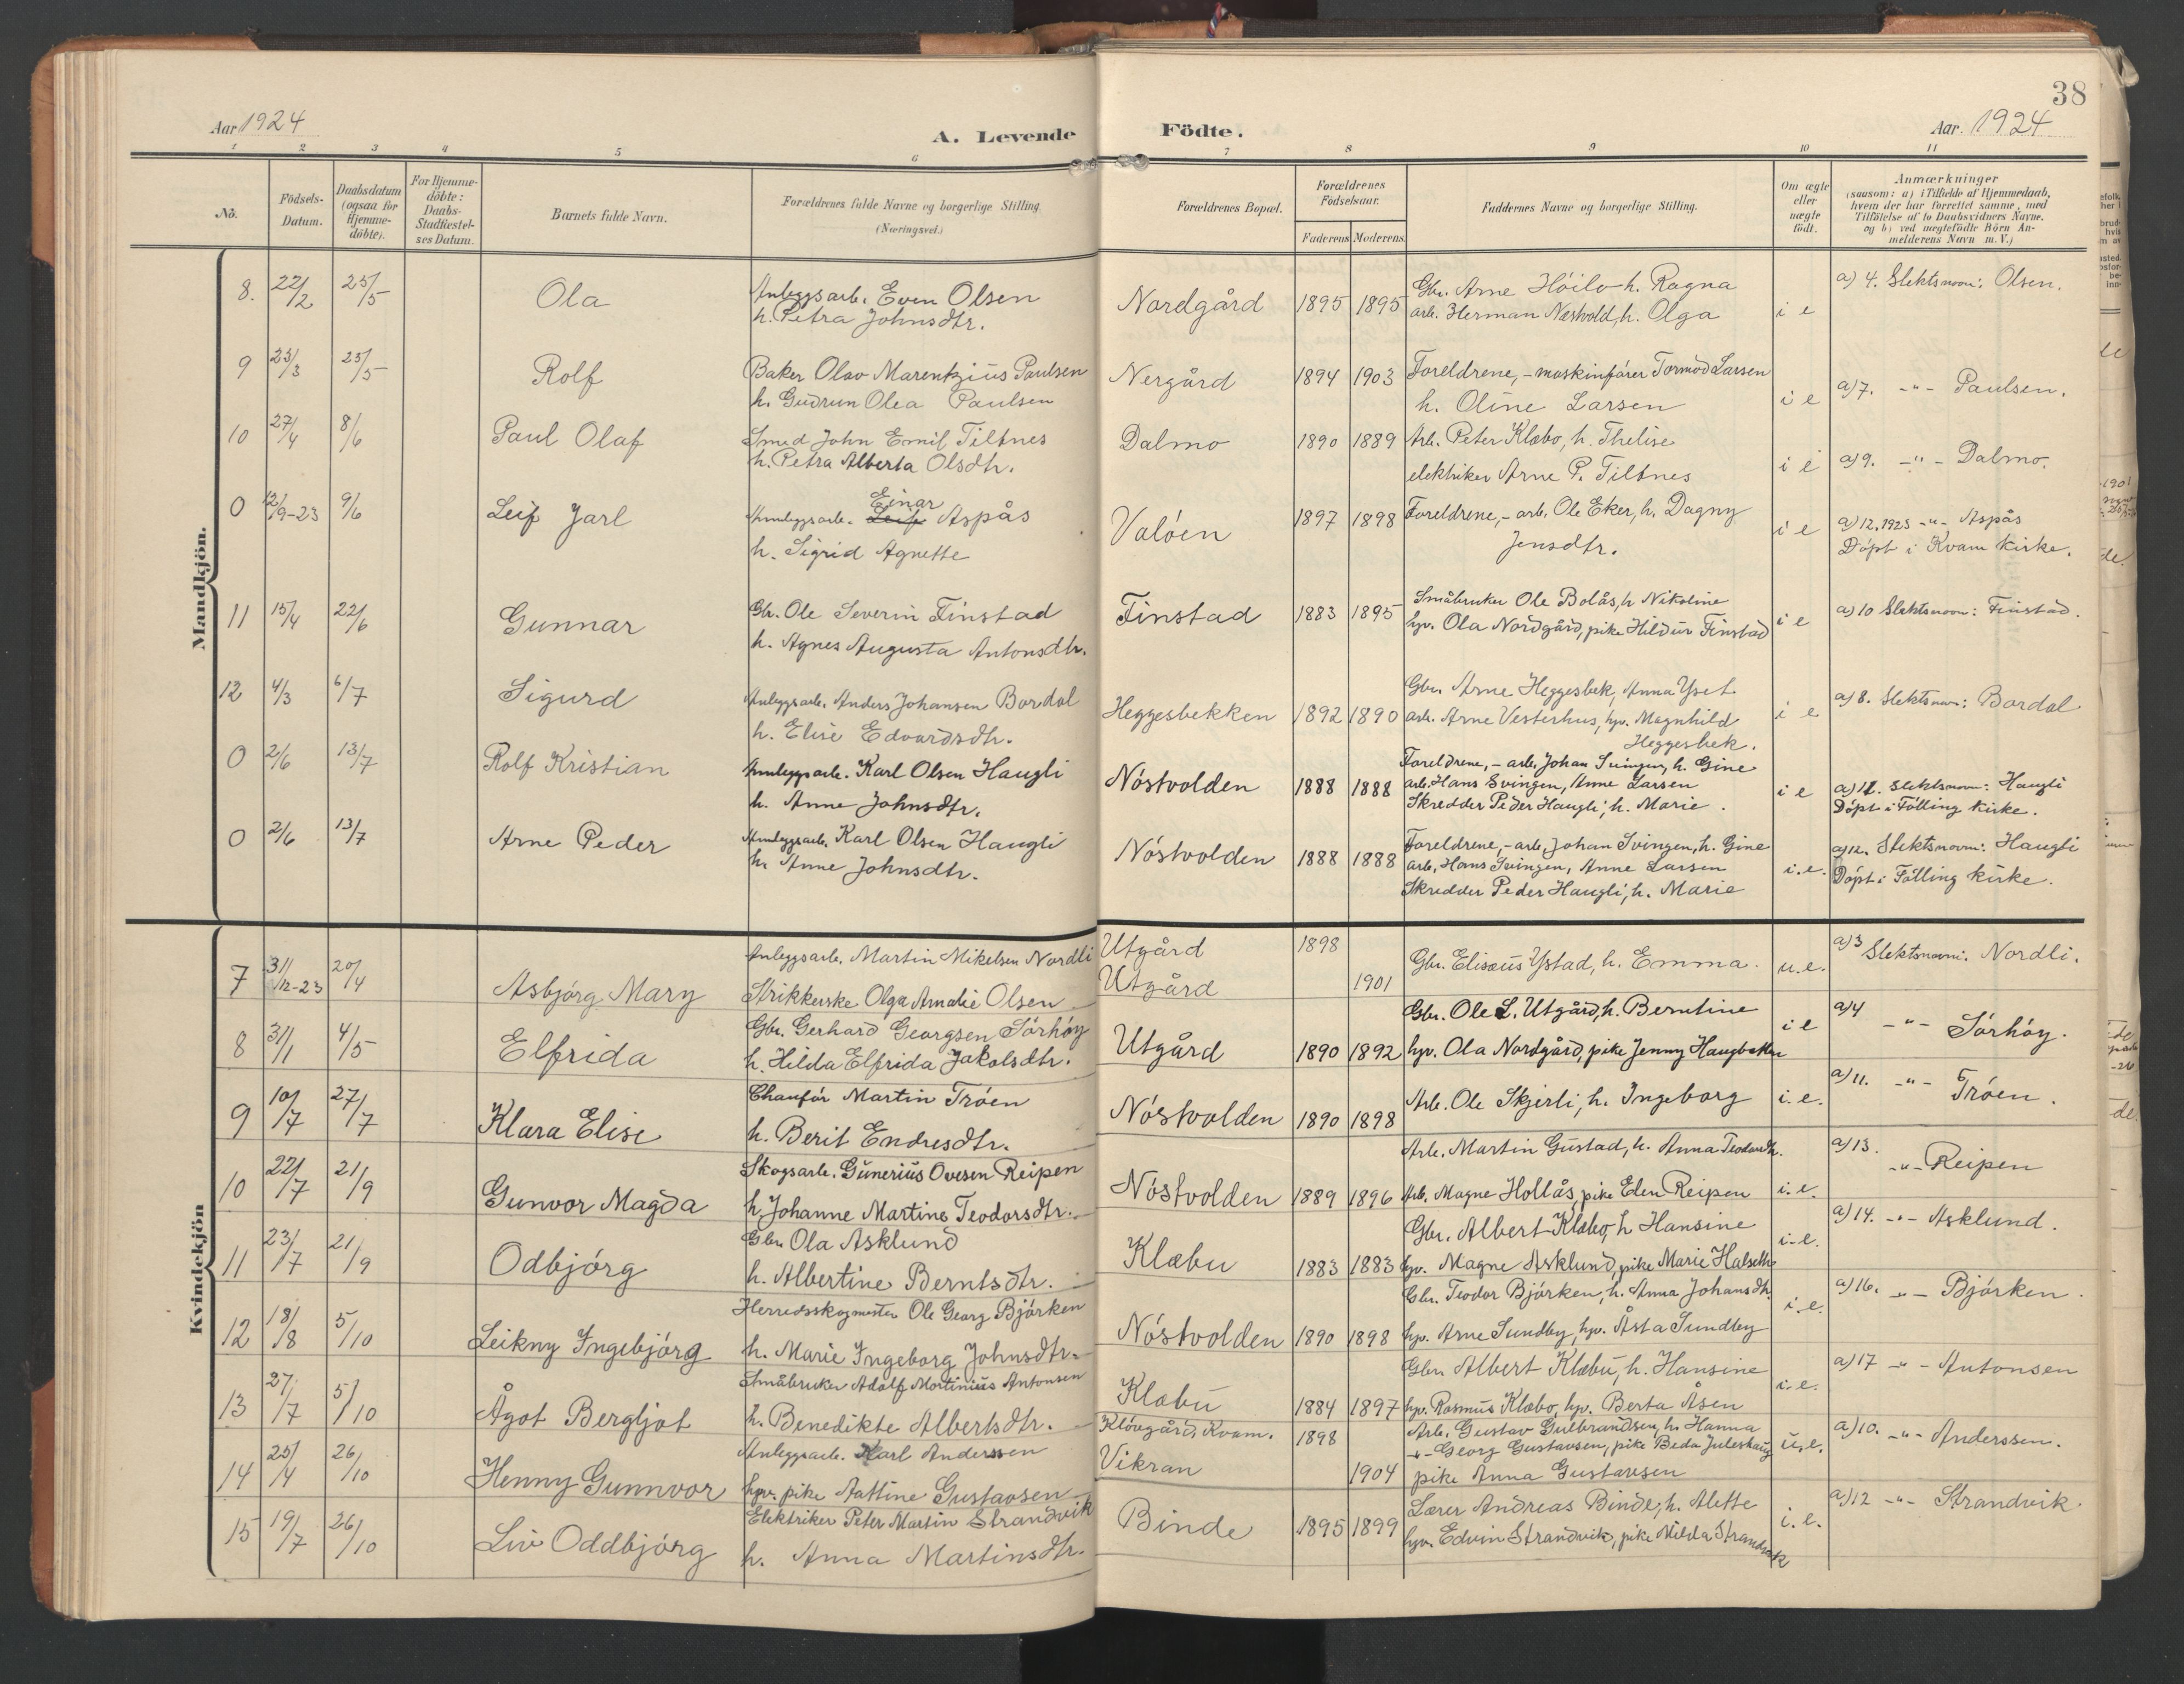 38
Aar 1924
A. Levende
Födte.
Aar. 1924
1 2 3 4 5 6 7 8 9 10 11
Nö.
Födsels-Datum.
Daabsdatum (ogsaa for Hjemme-döbte).
For Hjemme-döbte: Daabs-Stadfæstel-ses Datum.
Barnets fulde Navn.
Forældrenes fulde Navne og borgerlige Stilling. (Næringsvei.)
Forældrenes Bopæl.
Forældrenes Födselsaar.
Faderens Moderens
Faddernes Navne og borgerlige Stilling.
Om ægte eller uægte födt.
Anmærkninger
(saasom: a) i Tilfælde af Hjemmedaab,
hvem der har forrettet samme, med
Tilföielse af to Daabsvidners Navne.
og b) ved uægtefödte Börn An-
melderens Navn m. V.)
Mandkjön.
8. 22/2 25/5 Ola Anleggsarb. Even Olsen Nordgård 1895 1895 Gbr. Arne Höilo h. Ragna i e a) 4. Slektsnavn: Olsen.
h. Petra Johnsdtr. arb. Herman Næstvold, h. Olga
9 23/3 25/5 Rolf Baker Olav Marentzius Paulsen Nergård 1894 1903 Foreldrene, - maskinförer Tormod Larsen i e a) 7. -"- Paulsen.
h. Gudrun Olea Paulsen h. Oline Larsen
10 27/4 8/6 Paul Olaf Smed John Emil Tiltnes Dalmo 1890 1889 Arb. Peter Klæbo, h. Thelise i e a) 9. -"- Dalmo.
h. Petra Alberta Olsdtr. elektriker Arne P. Tiltnes
0 12/9-23 9/6 Leif Jarl Anleggsarb. Leif Einar Aspås Valöen 1897 1898 Foreldrene, - arb. Ole Eker, h. Dagny i e a) 12, 1923 -"- Aspås
h. Sigrid Agnette Jensdtr. Döpt i Kvam kirke.
11 15/4 22/6 Gunnar Gbr. Ole Severin Finstad Finstad 1883 1895 Småbruker Ole Bolås, h Nikoline i e a) 10 Slektsnavn: Finstad.
h. Agnes Augusta Antonsdtr. hpv. Ola Nordgård, pike Hildur Finstad
12 4/3 6/7 Sigurd Anleggsarb. Anders Johansen Bardal Heggesbekken 1892 1890 Gbr. Arne Heggesbek, Anna Yset i e a) 8. Slektsnavn: Bardal
h. Elise Edvardsdtr. arb. Arne Vesterhus, hpv. Magnhild
Heggesbek.
0 2/6 13/7 Rolf Kristian Anleggsarb. Karl Olsen Haugli Nöstvolden 1888 1888 Foreldrene, - arb. Johan Svingen, h. Gine i e a) 12. Slektsnavn: Haugli
h. Anne Johnsdtr. arb. Hans Svingen, Anne Larsen Döpt i Følling kirke.
Skredder Peder Haugli, h. Marie.
0 2/6 13/7 Arne Peder Anleggsarb. Karl Olsen Haugli Nöstvolden 1888 1888 Foreldrene, - arb. Johan Svingen, h. Gine i.e. a) 12. Slektsnavn: Haugli
h. Anne Johnsdtr. arb. Hans Svingen, Anne Larsen Döpt i Følling kirke.
Skredder Peder Haugli, h. Marie
Kvindekjön
7 31/12-23 20/4 Asbjörg Mary Anleggsarb. Martin Mikelsen Nordli Utgård 1898 Gbr. Elisæus Ystad, h. Emma. u.e. a) 3 Slektsnavn: Nordli.
Strikkerske Olga Amalie Olsen Utgård 1901
8 31/1 4/5 Elfrida Gbr. Gerhard Georgsen Sörhöy Utgård 1890 1892 Gbr. Ole L. Utgård, h. Berntine i e a) 4 -"- Sörhöy.
h. Hilda Elfrida Jakobsdtr. hpv. Ola Nordgård, pike Jenny Haugbakken
9 10/7 27/7 Klara Elise Chauför Martin Tröen Nöstvolden 1890 1898 Arb. Ole Skjerli, h. Ingeborg i.e. a) 11. -"- Tröen.
h. Berit Endresdtr.
10 22/7 21/9 Gunvor Magda Skogsarb. Gunerius Ovesen Reipen Nöstvolden 1889 1896 Arb. Martin Gustad, h. Anna Teodorsdtr. i.e. a) 13. -"- Reipen
h. Johanne Martine Teodorsdtr. Arb. Magne Hollås, pike Elen Reipen
11 23/7 21/9 Odbjörg Gbr. Ola Asklund Klæbu 1883 1883 Gbr. Albert Klæbo, h Hansine i-e. a) 14. -"- Asklund.
h. Albertine Berntsdtr. hpv. Magne Asklund, pike Marie Halseth
12 18/8 5/10 Leikny Ingebjörg Herredsskogmester Ole Georg Björken Nöstvolden 1890 1898 Gbr. Teodor Björken, h. Anna Johansdtr. i.e. a) 16. -"- Björken.
h. Marie Ingeborg Johnsdtr. hpv. Arne Sundby, hpv. Åsta Sundby
13 27/7 5/10 Ågot Bergljot Småbruker Adolf Mortinius Antonsen Klæbu 1884 1897 Gbr. Albert Klæbu, h. Hansine i.e. a) 17 -"- Antonsen
h. Benedikte Albertsdtr. hpv. Rasmus Klæbo, hpv. Berta Åsen
14 25/4 26/10 Henny Gunnvor Anleggsarb. Karl Anderssen Klövgård, Kvam. 1898 Arb. Gustav Gulbrandsen, h. Hanna u.e. a) 10. -"- Anderssen.
-"- Georg Gustavsen, pike Beda Juleshaug
hpv. pike Aattine Gustavsen Vikran 1904 pike Anna Gustavsen
15 19/7 26/10 Liv Oddbjörg Elektriker Peter Martin Strandvik Binde 1895 1899 Lærer Andreas Binde, h. Alette i.e. a) 12 -"- Strandvik.
h. Anna Martinsdtr. hpv. Edvin Strandvik, pike Nilda Strandvik